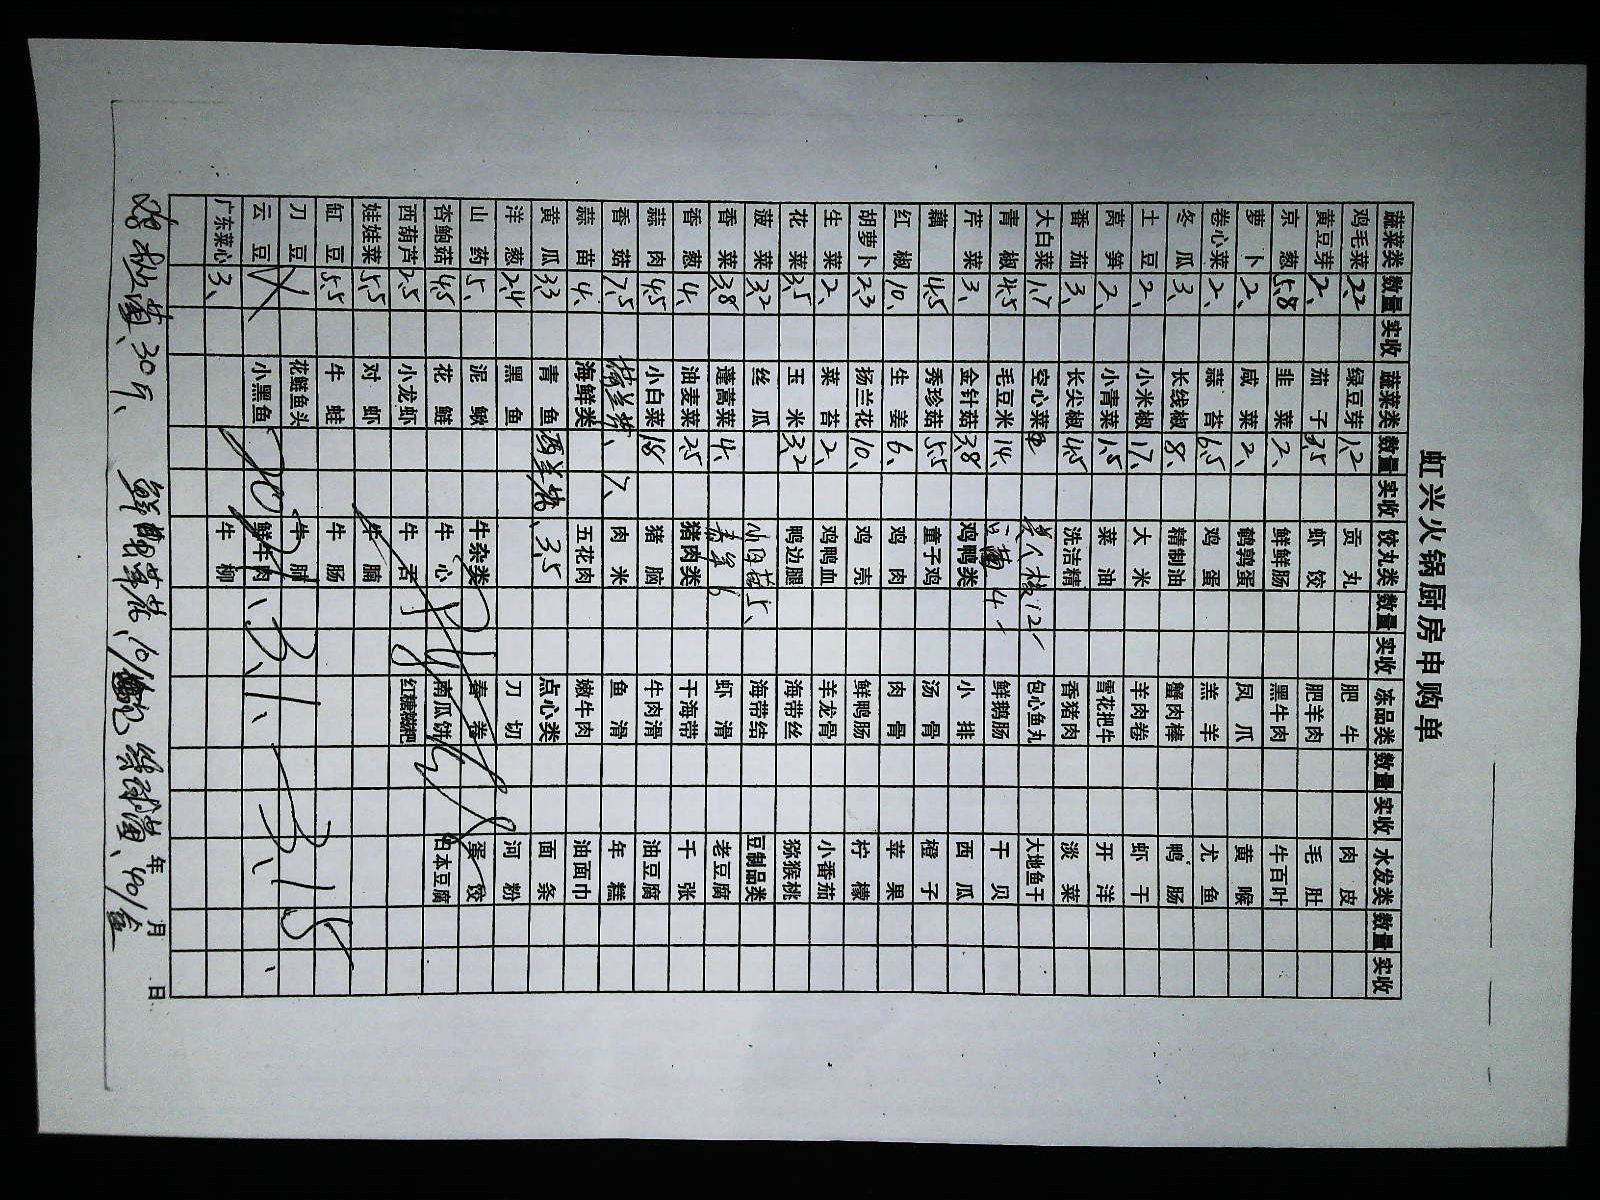 虹兴火锅厨房申购单
蔬菜类 数量 实收 蔬菜类 数量 实收 饺丸类 数量 实收 冻品类 数量 实收 水发类 数量 实收
鸡毛菜 2.2 绿豆芽 1.2 贡丸 肥牛 肉皮
黄豆芽 2、 茄子 3.5 虾饺 肥羊肉 毛肚
京葱 5.8 韭菜 2、 鲜鲜肠 黑牛肉 牛百叶
萝卜 2、 咸菜 2、 鹌鹑蛋 凤爪 黄喉
卷心菜 2、 蒜苔 6.5 鸡蛋 羔羊 尤鱼
冬瓜 3、 长线椒 8、 精制油 蟹肉棒 鸭肠
土豆 2、 小米椒 17、 大米 羊肉卷 虾干
莴笋 2、 小青菜 1.5 菜油 雪花把牛 开洋
番茄 3、 长尖椒 4.5 洗洁精 香猪肉 淡菜
大白菜 1.7 空心菜 包心鱼丸 大地鱼干
青椒 4.5 毛豆米 14、 4 鲜鹅肠 干贝
芹菜 3、 金针菇 3.8 鸡鸭类 小排 西瓜
藕 4.5 秀珍菇 5.5 童子鸡 汤骨 橙子
红椒 10、 生姜 6、 鸡肉 肉骨 苹果
胡萝卜 2.3 扬兰花 10、 鸡壳 鲜鸭肠 柠檬
生菜 2、 菜苔 2、 鸡鸭血 羊龙骨 小番茄
花菜 3.5 玉米 3.2 鸭边腿 海带丝 猕猴桃
菠菜 3.2 丝瓜 5、 海带结 豆制品类
香菜 3.8 蓬蒿菜 4、 6 虾滑 老豆腐
香葱 4、 油麦菜 2.5 猪肉类 干海带 千张
蒜肉 4.5 小白菜 1.8 猪脑 牛肉滑 油豆腐
香菇 7.5 7、 肉米 鱼滑 年糕
蒜苗 4、 海鲜类 五花肉 嫩牛肉 油面巾
黄瓜 3.3 青鱼 西兰花、3.5 点心类 面条
洋葱 2.4 黑鱼 刀切 河粉
山药 5、 泥鳅 牛杂类 春卷 蛋饺
杏鲍菇 4.5 花鲢 牛心 南瓜饼 日本豆腐
西葫芦 2.5 小龙虾 牛舌 红糖糍粑
娃娃菜 5.5 对虾 牛腩
缸豆 5.5 牛蛙 牛肠
刀豆 花鲢鱼头 牛肺
云豆 小黑鱼 鲜牛肉
广东菜心 3、 牛柳
年 月 日